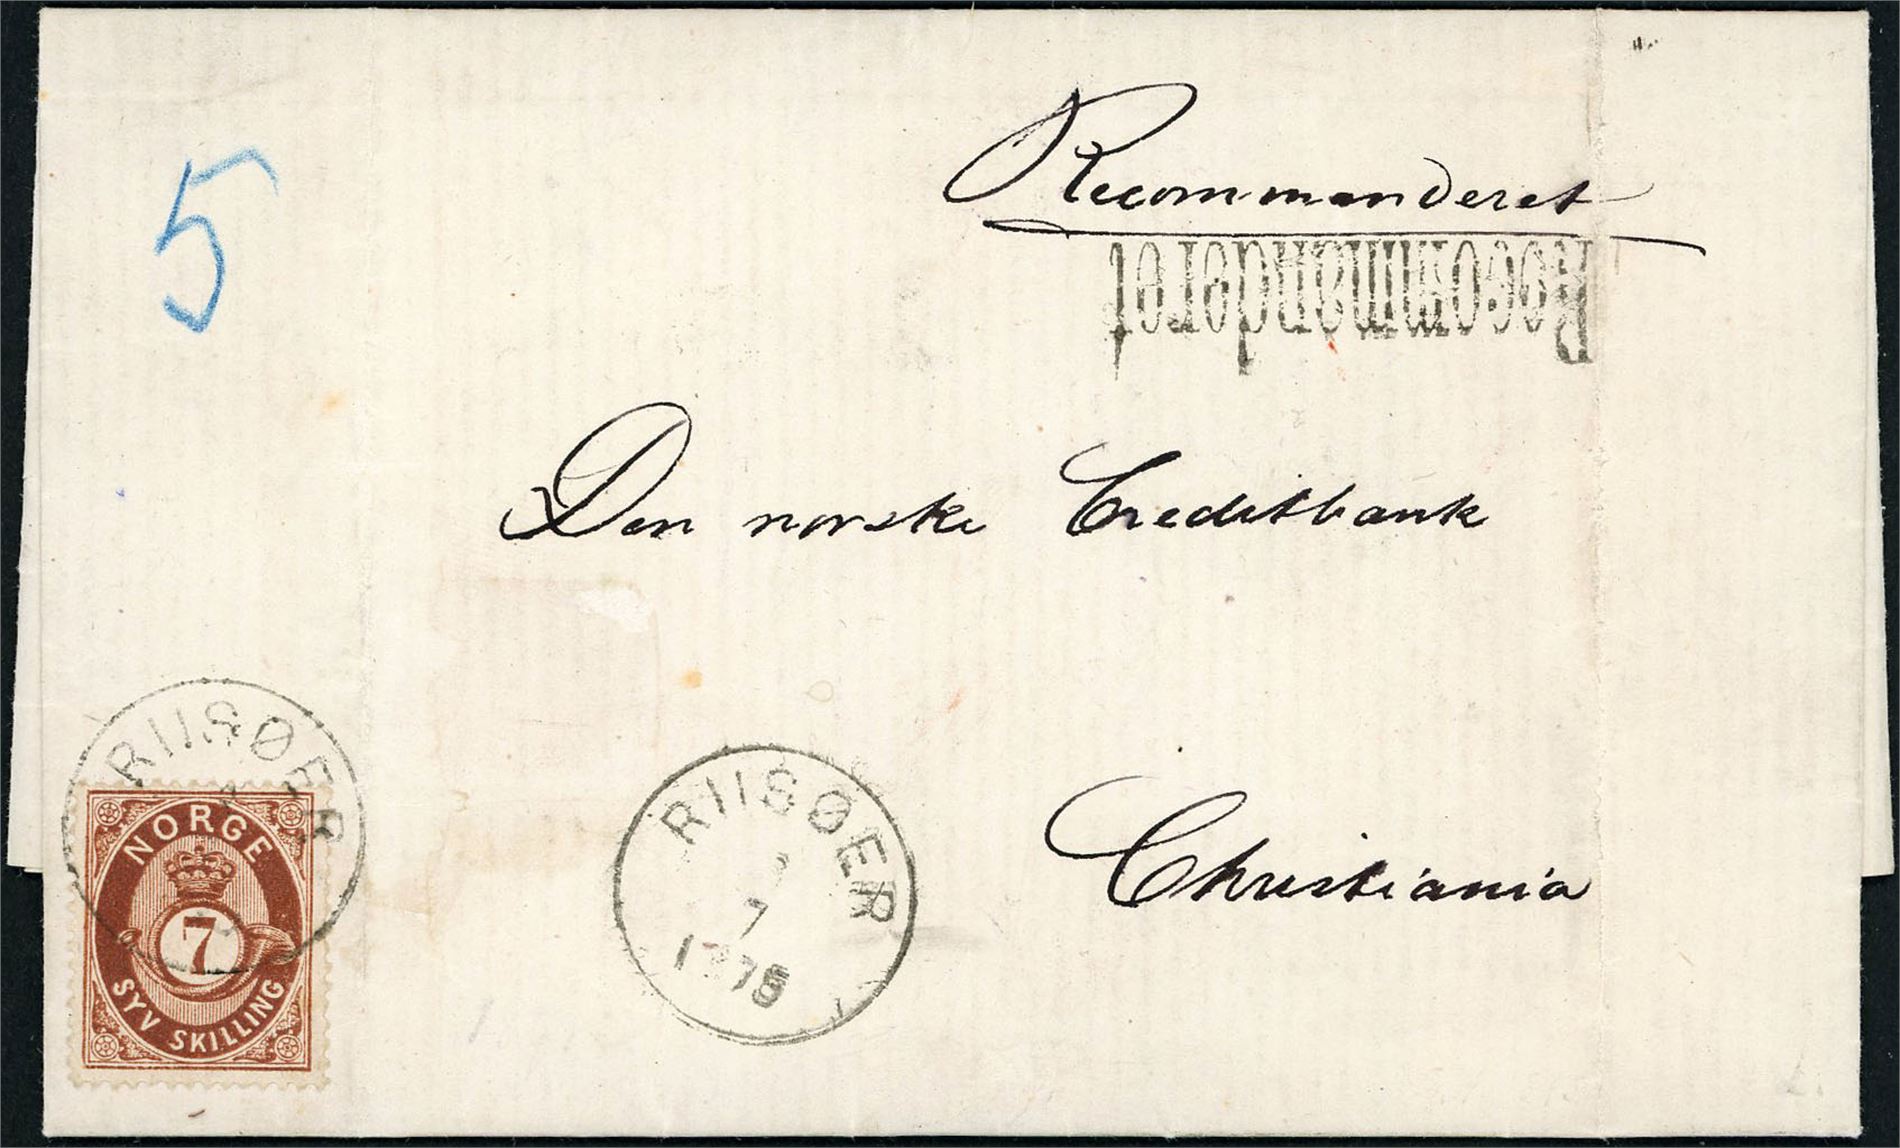 5
Recommanderet
Recommanderet
Den norske Creditbank
Christiania
RIISØER
NORGE
7
SYV SKILLING
RIISØER
7